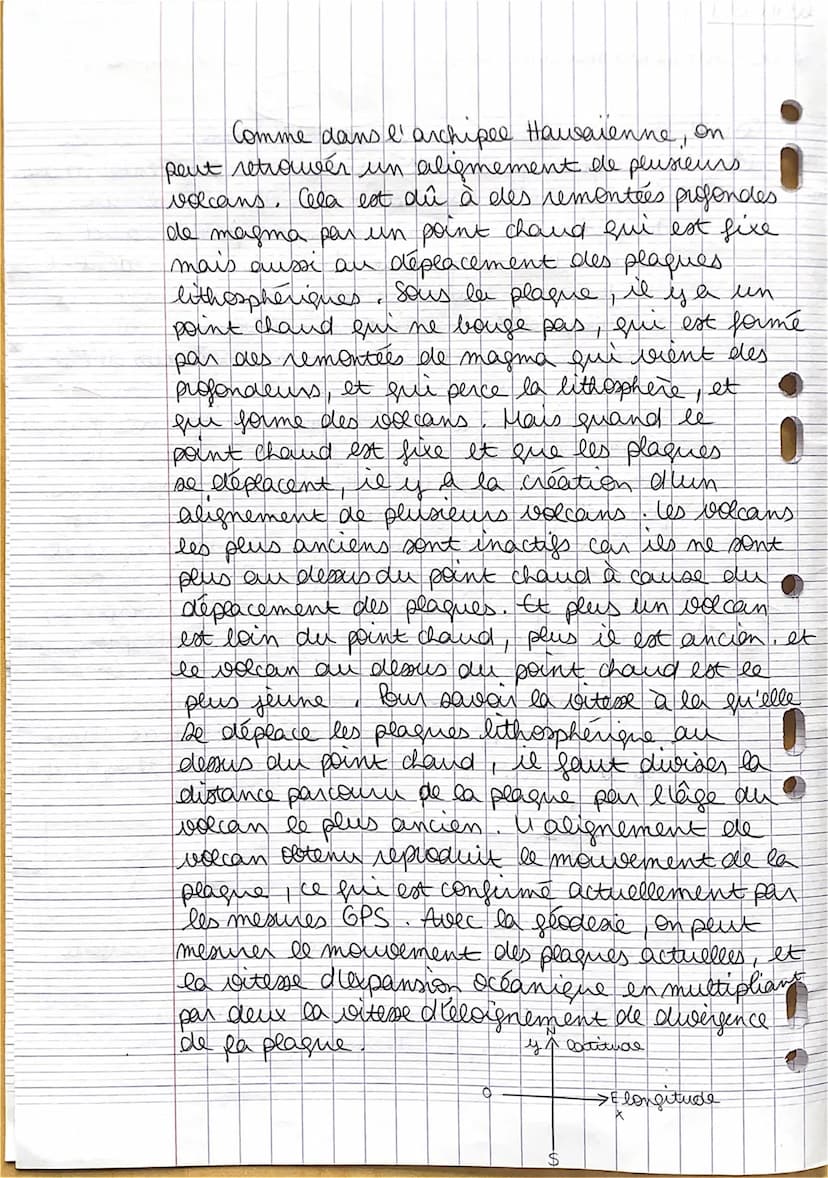 Comme dans l'archipel Hawaïenne, on
peut retrouver un alignement de plusieurs
volcans. Cela est dû à des remontées profondes
de magma par un point chaud qui est fixe
mais aussi au déplacement des plaques
lithosphériques. Sous la plaque, il y a un
point chaud qui ne bouge pas, qui est formé
par des remontées de magma qui vient des
profondeurs, et qui perce la lithosphère, et
qui forme des volcans. Mais quand le
point chaud est fixe et que les plaques
se déplacent, il y a la création d'un
alignement de plusieurs volcans. Les volcans
les plus anciens sont inactifs car ils ne sont
plus au dessus du point chaud à cause du
déplacement des plaques. Et plus un volcan
est loin du point chaud, plus il est ancien. et
le volcan au dessus du point chaud est le
plus jeune. Pour savoir la vitesse à la qu'elle
se déplace les plaques lithosphérique au
dessus du point chaud, il faut diviser la
distance parcouru de la plaque par l'âge du
volcan le plus ancien. L'alignement de
volcan obtenu reproduit le mouvement de la
plaque, ce qui est confirmé actuellement par
les mesures GPS. Avec la géodesie, on peut
mesurer le mouvement des plaques actuelles, et
la vitesse d'expansion océanique en multipliant
par deux la vitesse d'éloignement de divergence
de la plaque.
N
y latitude
O E longitude
x
S